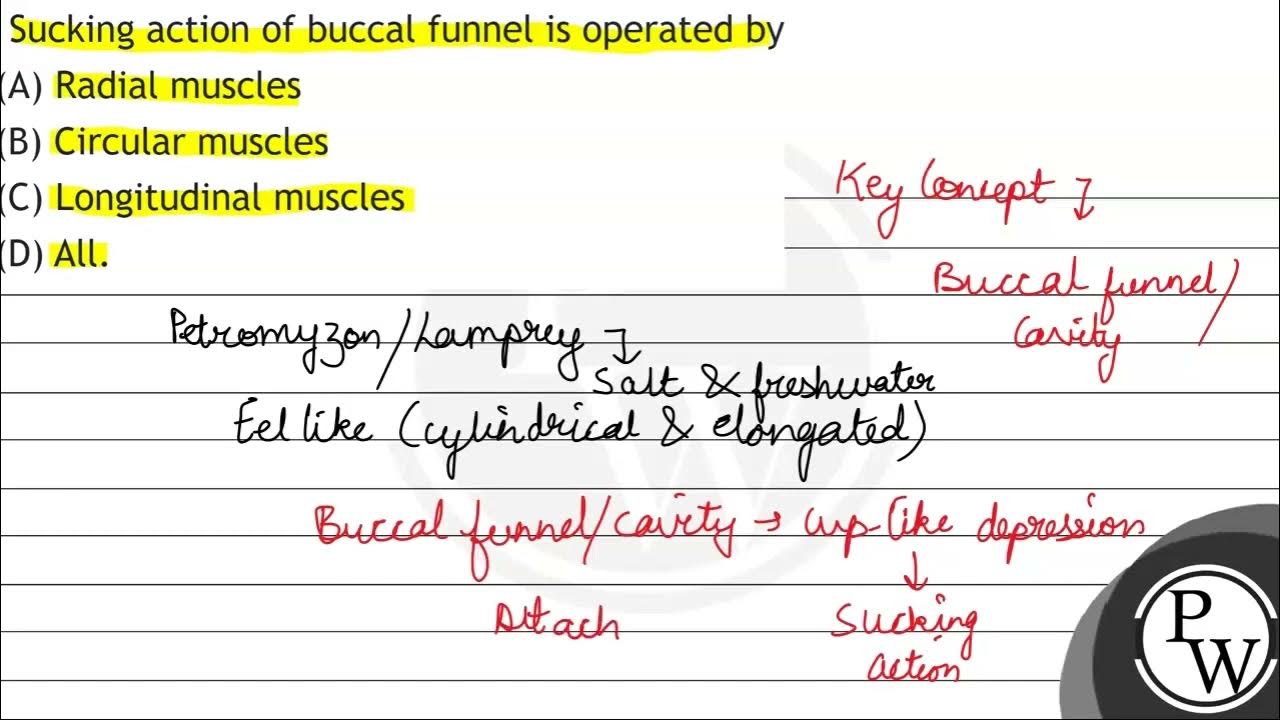 Sucking action of buccal funnel is operated by
(A) Radial muscles
(B) Circular muscles
(C) Longitudinal muscles
(D) All.
Key Concept
Buccal funnel/
Cavity
Petromyzon/Lamprey
Salt & freshwater
Eel like (cylindrical & elongated)
Buccal funnel/cavity → cup-like depression
↓
Attach Sucking
action
PW